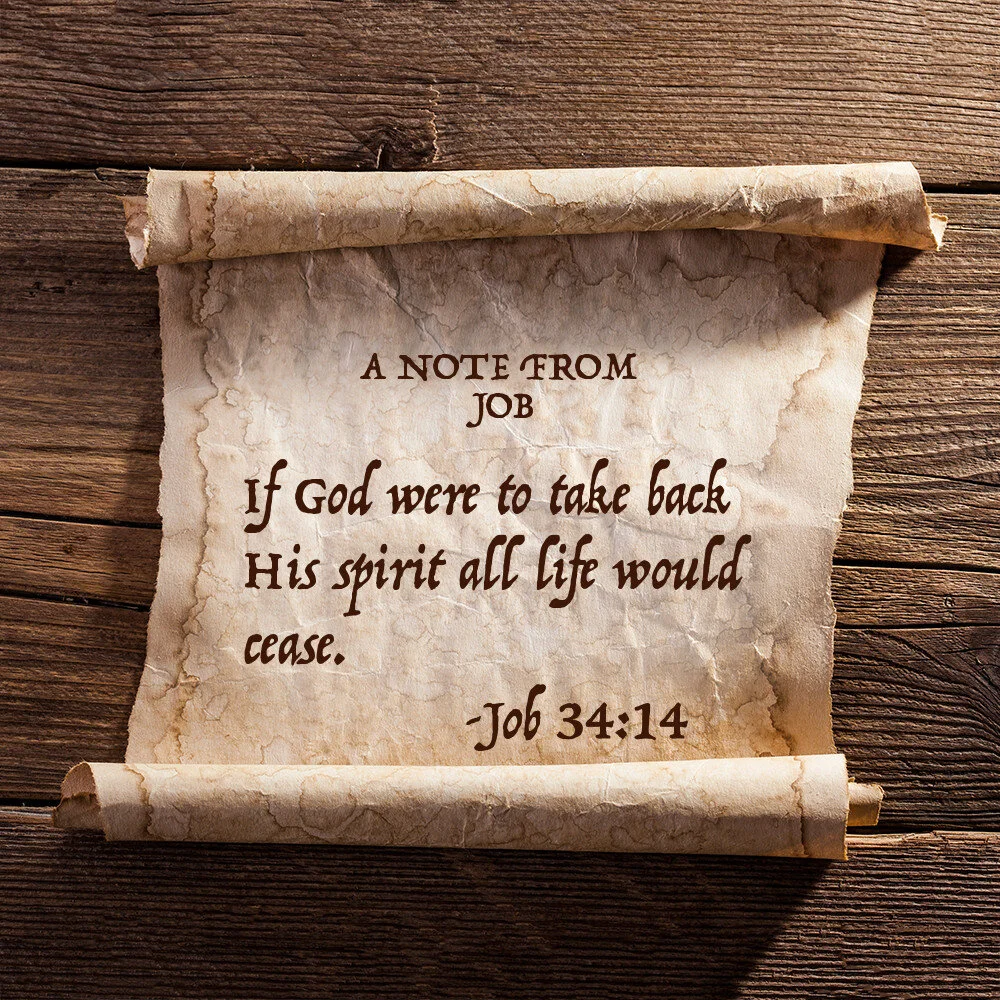 A NOTE FROM
JOB
If God were to take back
His spirit all life would
cease.
-Job 34:14